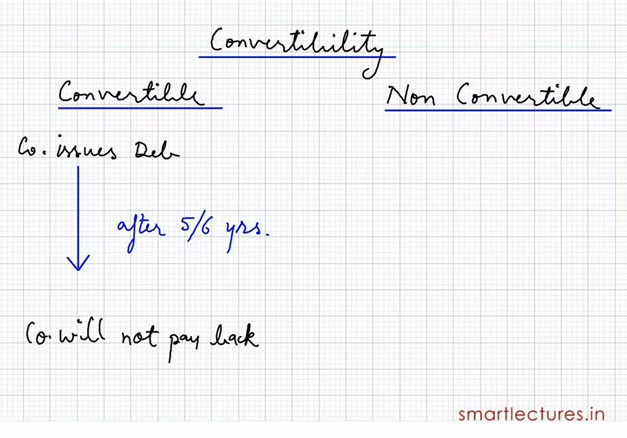 Convertibility
Convertible
Non Convertible
Co. issues Deb
after 5/6 yrs.
Co. will not pay back
smartlectures.in